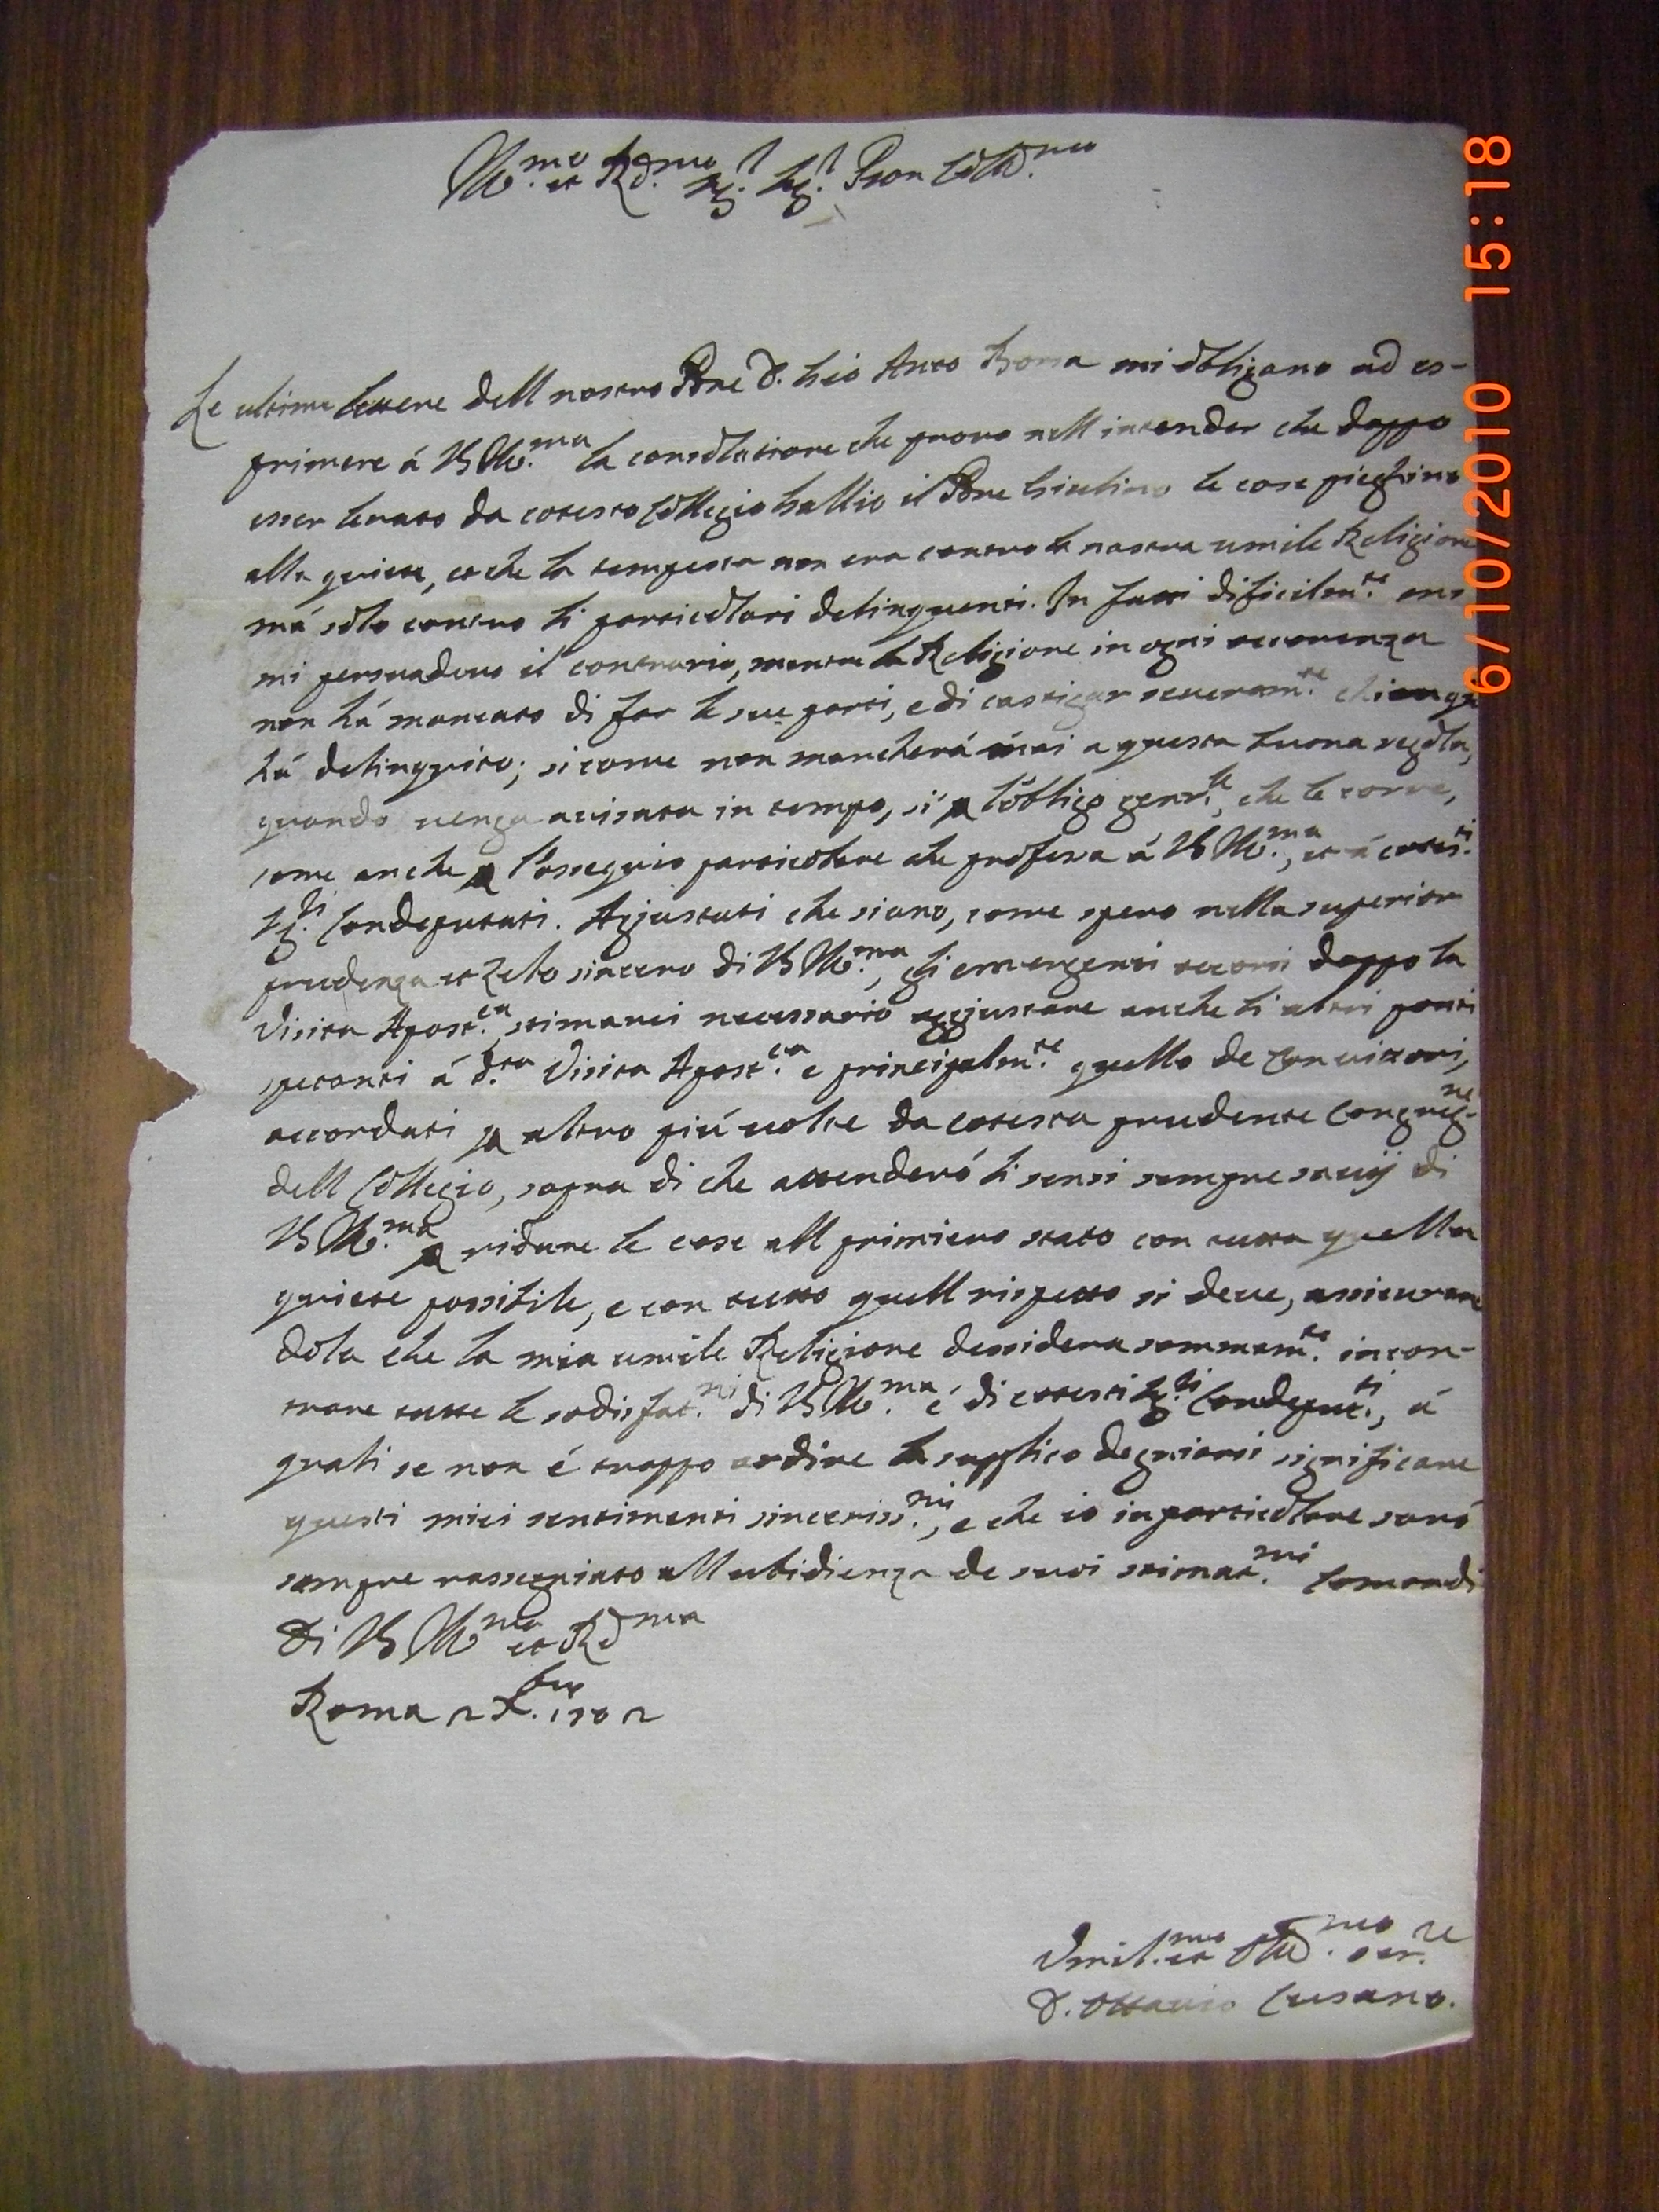 Ill.mo et R.d.mo Sig.r Sig.r Pron Coll.mo
Le ultime lettere dell nostro Pre D. Gio Anto Borsa mi obligano ad es-
primere á VS Ill.ma la consolatione che provo nell intender che doppo
esser levato da cotesto Collegio Gallio il Pre Giulino le cose pieghino
alla quiete, et che la tempesta non era contro la nostra umile Religione
má solo contro li particolari delinquenti. In fatti dificilm.te
mi persuadevo il contrario, mentre la Religione in ogni occorenza
non há mancato di far le sue parti, e di castigar severam.te chiunque
há delinquito; si come non mancherá mai a questa buona regola,
quando venga avisata in tempo, si p l'obbligo gener.le che le corre,
come anche p l'ossequio particolare che professa á VS Ill.ma, et á cotes.ti
Sig.ri Condeputati. Aggiustati che siano, come spero nella superior
prudenza et zelo sincero di VS Ill.ma, gli emergenti occorsi doppo la
Visita Apost.ca, stimarei necessario aggiustare anche li altri ponti
spetanti á d.ta Visita Apost.ca e principalm.te quello de Convittori,
accordati p altro piú volte da cotesta prudente Congreg.ne
dell Collegio, sopra di che attenderó li sensi sempre savij di
VS Ill.ma p ridure le cose all primiero stato con tutta quella
quiete possibile, e con tutto quell rispetto si deve, assicuran
dola che la mia umile Religione dessidera sommam.te incon-
trare tutte le sodisfat.ni di VS Ill.ma é di cotesti Sig.ri Condeput.ti, á
quali se non é troppo ardire la supplico degniarsi significare
questi miei sentimenti sinceriss.mi, e che io in particolare saró
sempre rassegniato all ubidienza de suoi stimat.mi Comandi
Di VS Ill.ma et R.d.ma
Roma 2 X.bre 1702
Umil.mo et Obl.mo ser.re
D. Ottavio Cusano.
6/10/2010 15:18